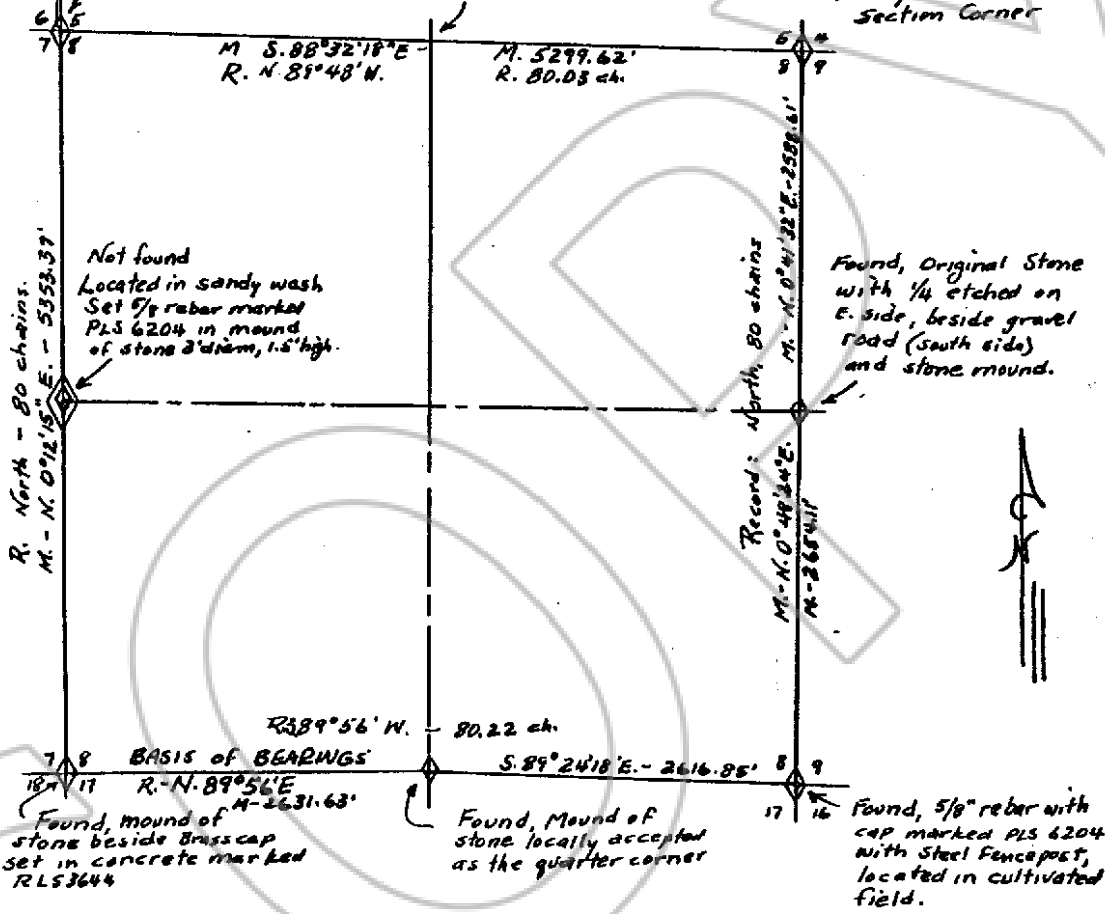 Section Corner
6 5
7 8
M S.88°32'18"E -
R. N.89°48'W.
M. 5299.62'
R. 80.03 ch.
5 4
8 9
R. North - 80 chains.
M. - N. 0°12'15" E. - 5353.37'
Not found
Located in sandy wash
Set 5/8 rebar marked
PLS 6204 in mound
of stone 3'diam, 1.5'high.
Record: North, 80 chains
M. - N. 0°41'32"E. - 2588.61'
M. - N. 0°48'24"E.
M. - 2654.11'
Found, Original Stone
with 1/4 etched on
E. side, beside gravel
road (south side)
and stone mound.
N
R.S89°56' W. - 80.22 ch.
7 8
18 17
BASIS of BEARINGS
R.-N.89°56'E
M-2631.63'
S.89°24'18"E. - 2616.85'
8 9
17 16
Found, mound of
stone beside Brasscap
set in concrete marked
RLS3644
Found, Mound of
stone locally accepted
as the quarter corner
Found, 5/8" rebar with
cap marked PLS 6204
with Steel Fencepost,
located in cultivated
field.